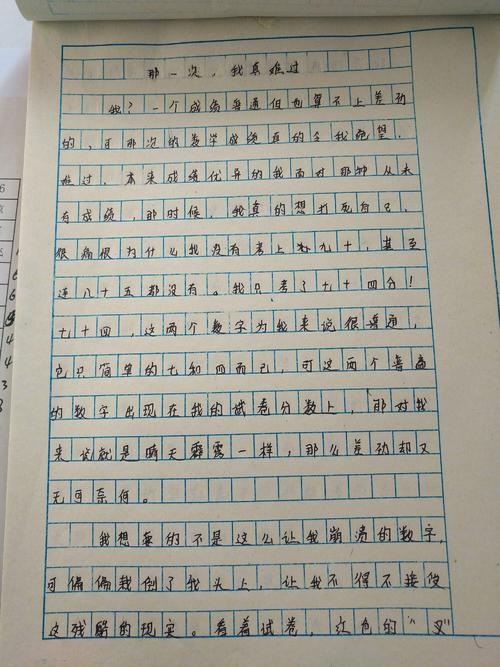 那一次，我真难过
我？一个成绩普通但也算不上差劲
的，可那次的数学成绩真的令我绝望，
难过，本来成绩优异的我面对那种从未
有成绩，那时候，我真的想打死自己，
很痛恨为什么我没有考上九十，甚至
连八十五都没有。我只考了七十四分！
七十四，这两个数字为我来说很普通，
它只简单的七和四而已，可这两个普通
的数字出现在我的试卷分数上，那对我
来说就是晴天霹雳一样，那么差劲却又
无可奈何。
我想要的不是这么让我崩溃的数字，
可偏偏栽倒了我头上，让我不得不接受
这残酷的现实。看着试卷，红色的“叉”